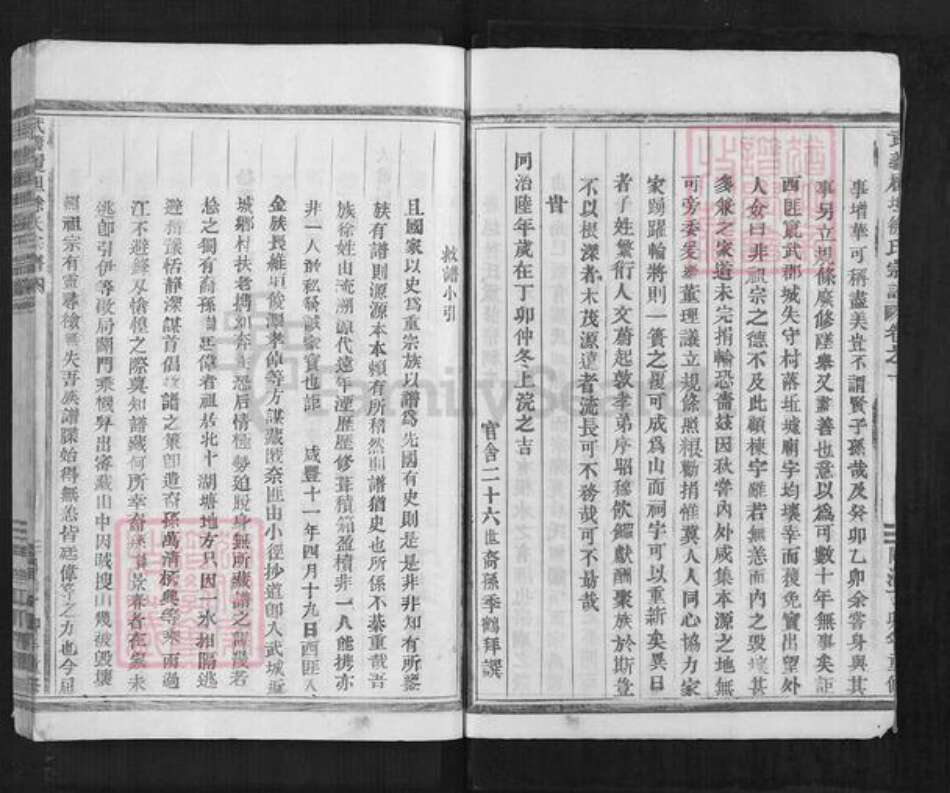 事增華可稱盡美豈不謂賢子孫哉及癸卯乙卯余嘗身與其
事另立規條廢修墜舉又盡善也意以為可數十年無事矣詎
西匪寬武郡城失守村落坵墟廟宇均壞幸而獲免實出望外
人僉曰非祖宗之德不及此顧棟宇雖若無恙而內之毀壞甚
多兼之家道未完捐輸恐嗇茲因秋嘗內外咸集本源之地無
可旁委爰舉董理議立規條照粮勸捐惟冀人人同心協力家
家踴躍輸將則一簣之覆可成為山而祠宇可以重新矣異日
者子姓繁衍人文蔚起敦孝弟序昭穆飲餾獻酬聚族於斯豈
不以根深者木茂源遠者流長可不務哉可不勗哉
同治陸年歲在丁卯仲冬上浣之吉
官舍二十六世裔孫季鶴拜譔
救譜小引
且國家以史為重宗族以譜為先國有史則是是非非知有所鑒
族有譜則源源本本賴有所稽然則譜猶史也所係不綦重哉吾
族徐姓由流溯源代遠年湮歷歷修葺積箱盈櫝非一人能携亦
非一人所私發誠家寶也詎 咸豐十一年四月十九日西匪入
金族長維垣俊源孝偉等方謀藏匿奈匪由小徑抄道即入武城
城鄉村扶老携幼奔走恐后情極勢迫脫身無所藏譜之
惟之獨有裔孫 廷偉者祖居北十湖塘地方只因一水相隔逃
避 恬靜深謀首倡 譜之策即遣裔孫萬清 興等來而過
江不避鋒刃倉惶之際莫知譜藏何所幸 在家未
逃即引伊等啟局開門乘機舁出審藏山中因賊搜山幾被毀壞
祖宗有靈尋檢無失吾族譜牒始得無恙皆廷偉等之力也今屆